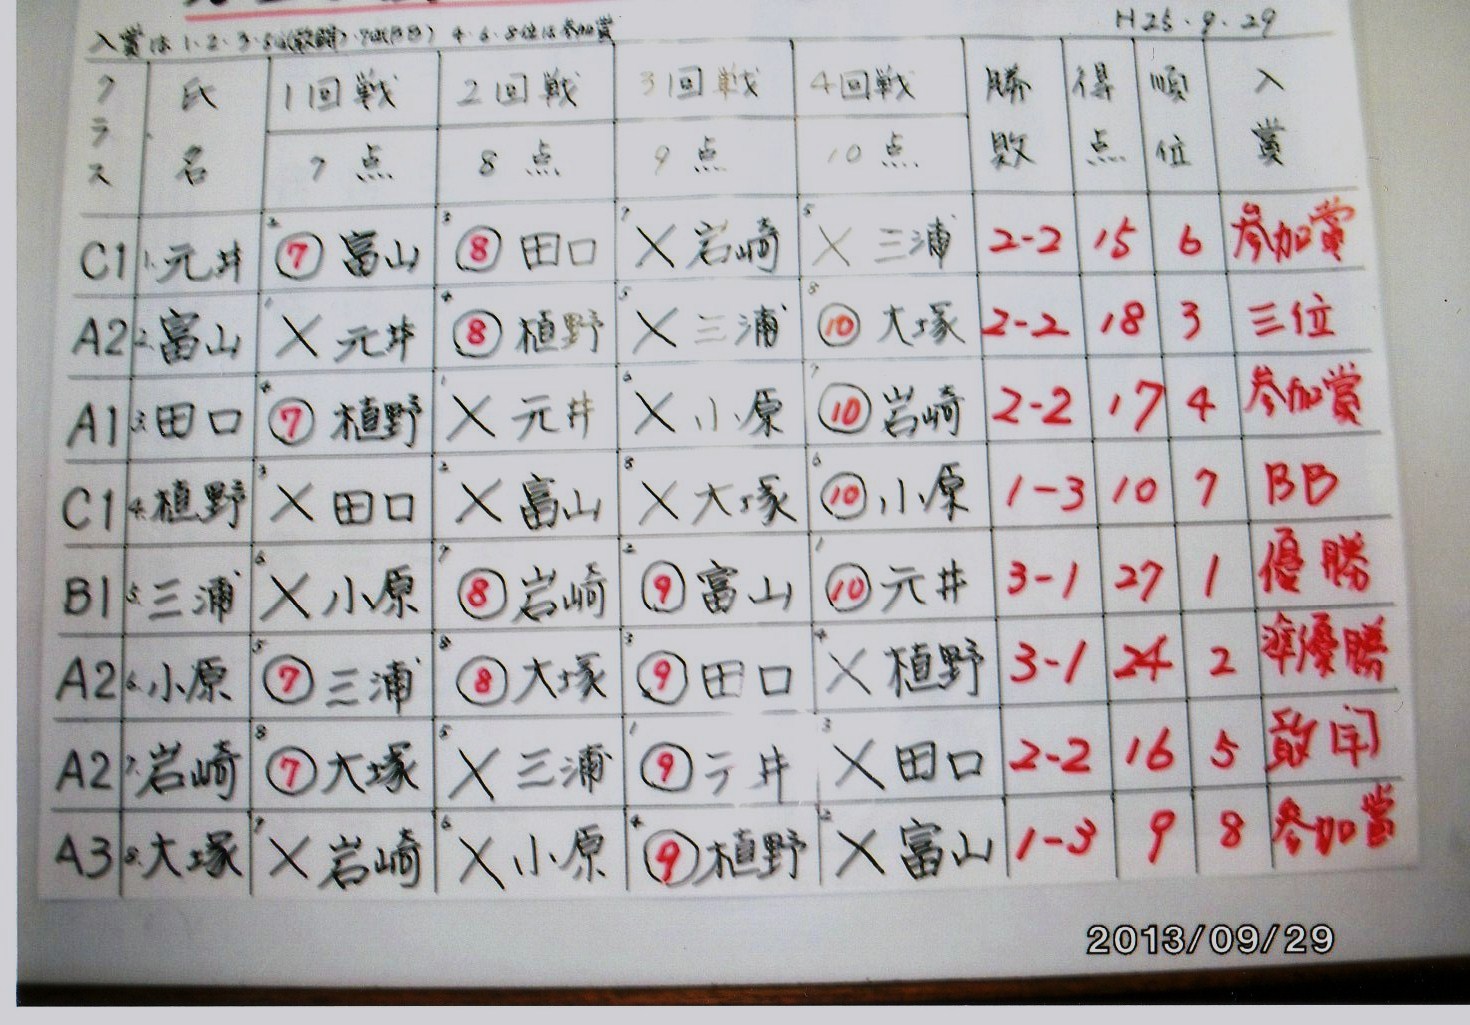 H25.9.29
入賞は1.2.3.5位(敢闘).7位(BB) 4.6.8位は参加賞
クラス 氏名 1回戦 7点 2回戦 8点 3回戦 9点 4回戦 10点 勝敗 得点 順位 入賞
C1 1.元井 2 ⑦ 富山 3 ⑧ 田口 7 X 岩崎 5 X 三浦 2-2 15 6 参加賞
A2 2.富山 1 X 元井 4 ⑧ 植野 5 X 三浦 8 ⑩ 大塚 2-2 18 3 三位
A1 3.田口 4 ⑦ 植野 1 X 元井 6 X 小原 7 ⑩ 岩崎 2-2 17 4 参加賞
C1 4.植野 3 X 田口 2 X 富山 8 X 大塚 6 ⑩ 小原 1-3 10 7 BB
B1 5.三浦 6 X 小原 7 ⑧ 岩崎 2 ⑨ 富山 1 ⑩ 元井 3-1 27 1 優勝
A2 6.小原 5 ⑦ 三浦 8 ⑧ 大塚 3 ⑨ 田口 4 X 植野 3-1 24 2 準優勝
A2 7.岩崎 8 ⑦ 大塚 5 X 三浦 1 ⑨ 元井 3 X 田口 2-2 16 5 敢闘
A3 8.大塚 7 X 岩崎 6 X 小原 4 ⑨ 植野 2 X 富山 1-3 9 8 参加賞
2013/09/29